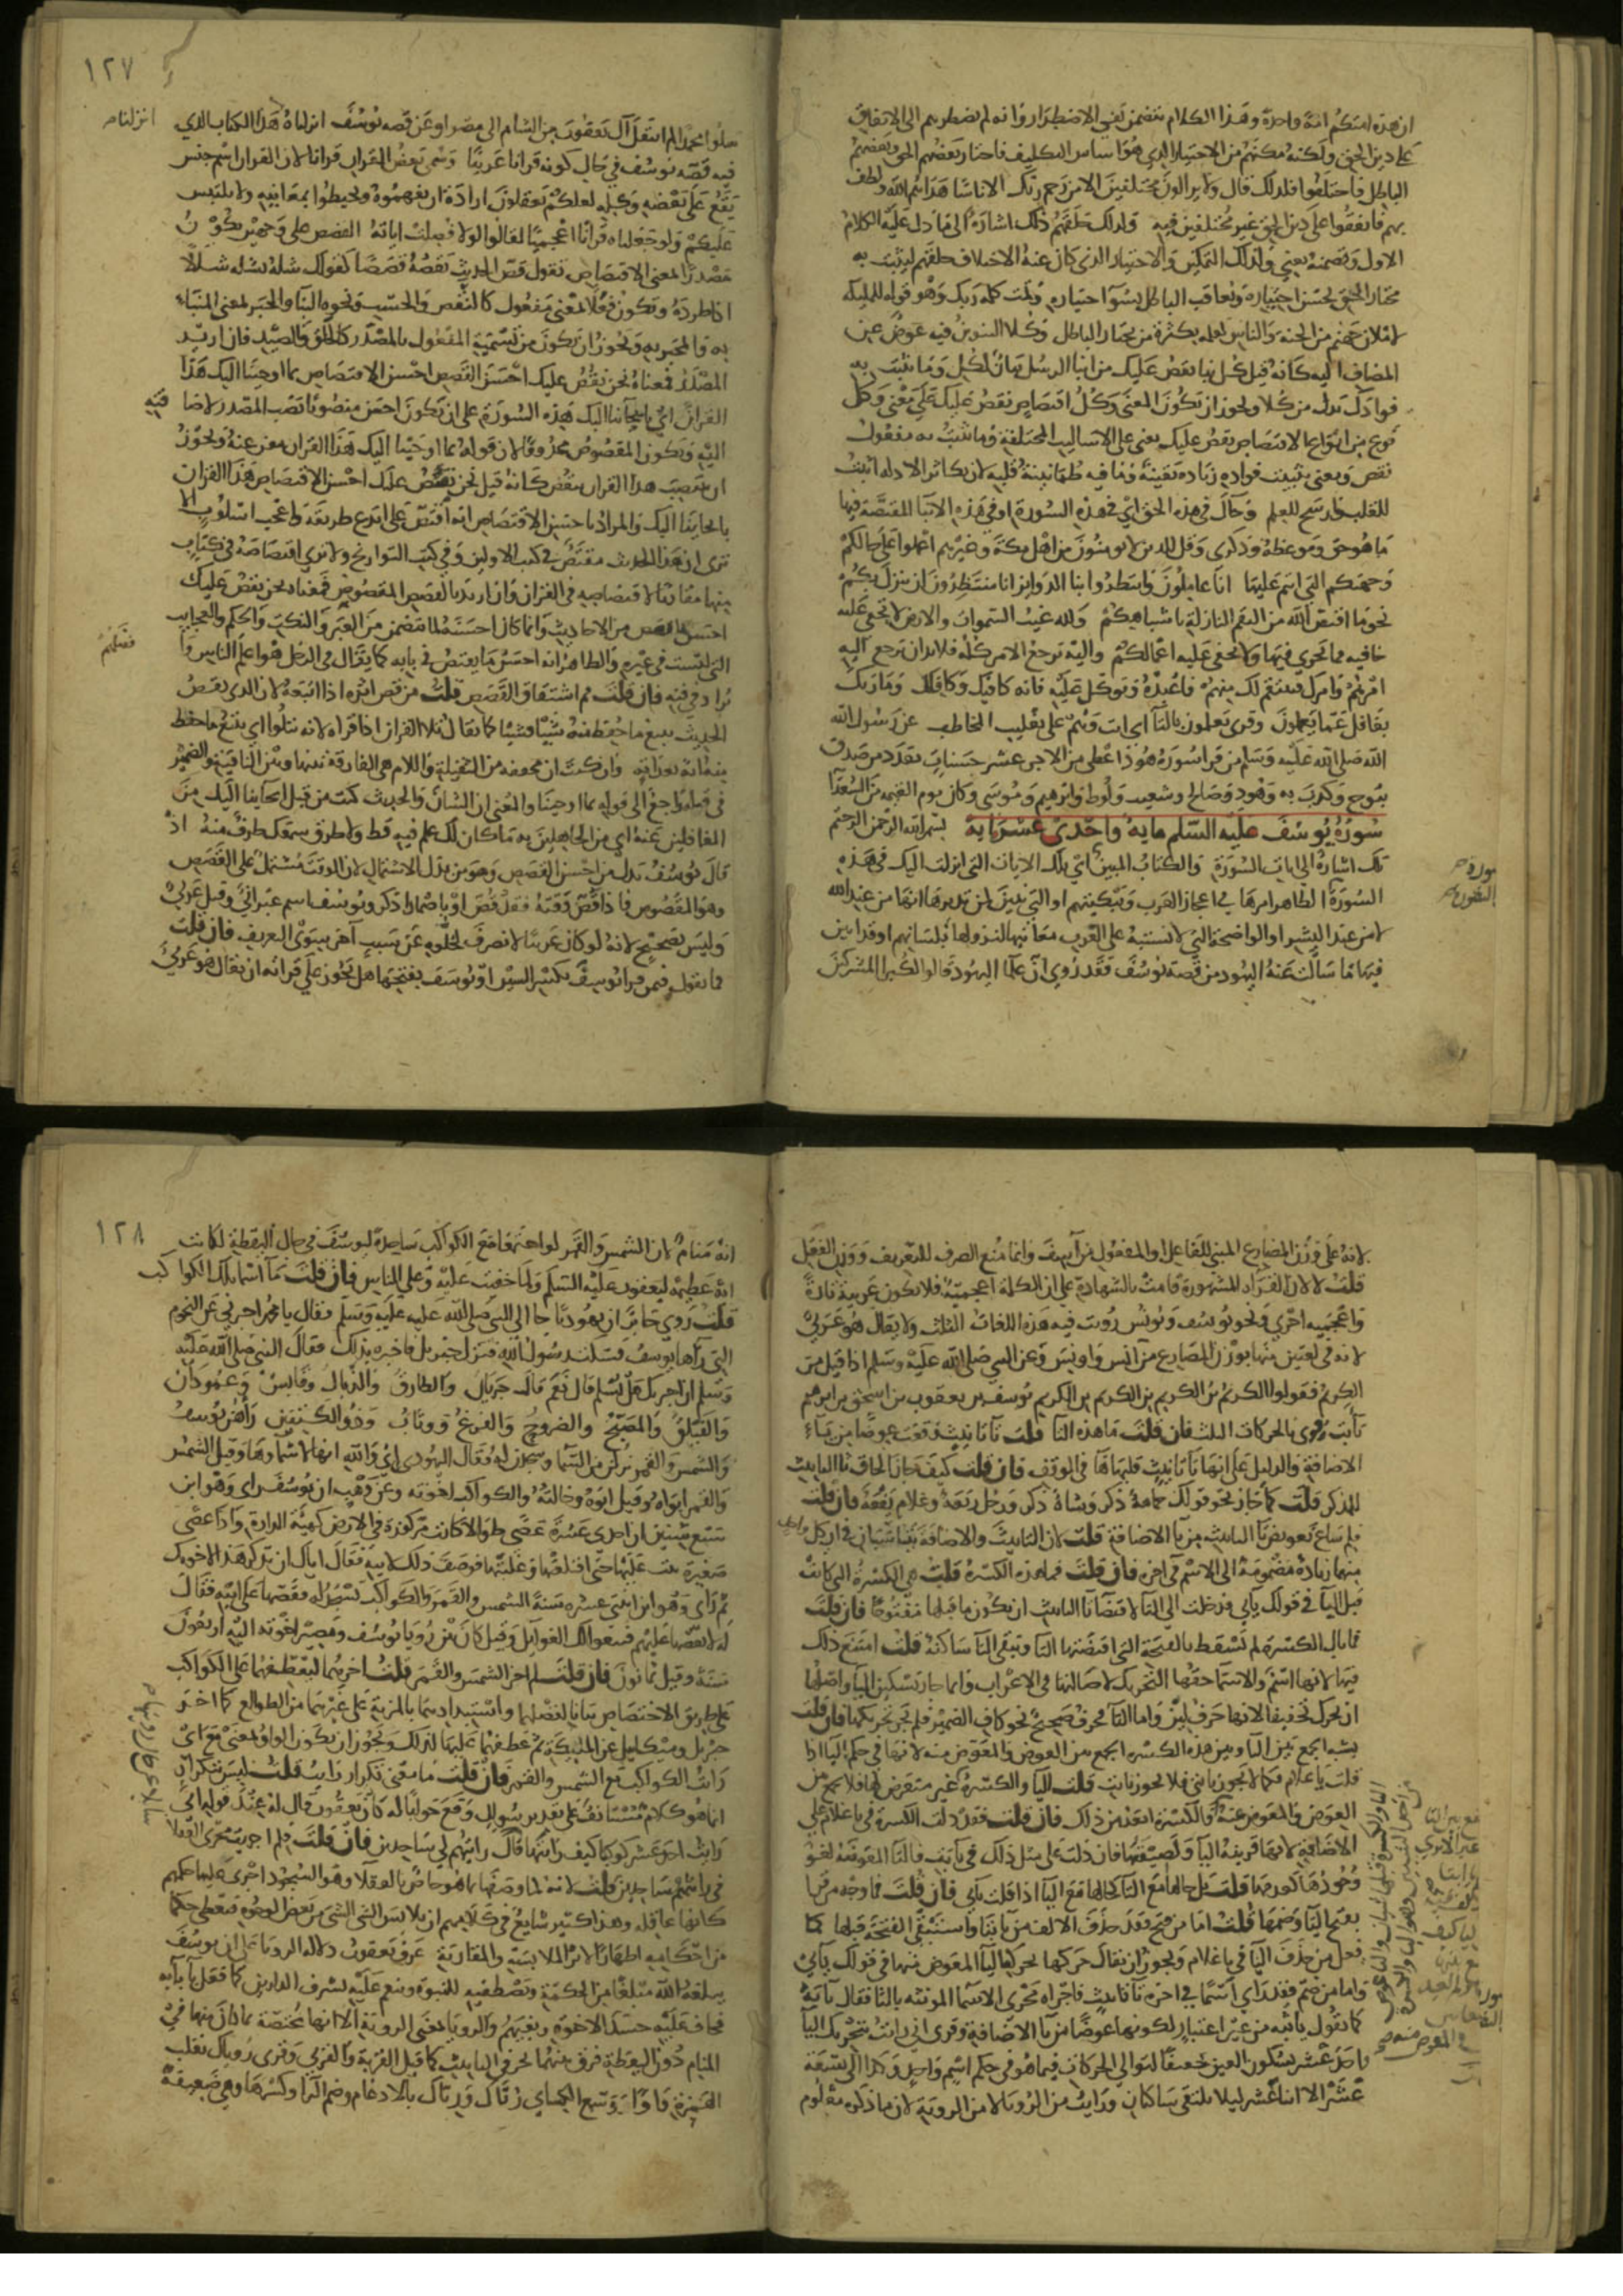 ان هذه امتكم امة واحدة وهذا الكلام يتضمن نفي الاضطرار وانه لم يضطرهم الى الاتفاق
على دين الحق ولكنه مكنهم من الاختيار الذي هو اساس التكليف فاختار بعضهم الحق وبعضهم
الباطل فاختلفوا فلذلك قال ولا يزالون مختلفين الا من رحم ربك الا ناسا هداهم الله ولطف
بهم فاتفقوا على دين الحق غير مختلفين فيه ولذلك خلقهم ذلك اشارة الى ما دل عليه الكلام
الاول وتضمنه يعني ولذلك التمكين والاختيار الذي كان عنه الاختلاف خلقهم ليثيب به
مختار الحق بحسن اختياره ويعاقب الباطل بسوء اختياره وتمت كلمة ربك وهو قوله للملائكة
لاملان جهنم من الجنة والناس لعلمه بكثرة من يختار الباطل وكلا التنوين فيه عوض عن
المضاف اليه كانه قيل كل نبا نقص عليك من انبا الرسل بيان لكل وما نثبت به
فوادك بدل من كلا ويجوز ان يكون المعنى وكل اقتصاص نقص عليك على معنى وكل
نوع من انواع الاقتصاص نقص عليك يعني على الاساليب المختلفة وما نثبت به مفعول
نقص ومعنى تثبيت فواده زيادة يقينه وما فيه طمانينة قلبه لان تكاثر الادلة اثبت
للقلب وارسخ للعلم وجاك في هذه الحق اي في هذه السورة او في هذه الانبا المقتصة فيها
ما هو حق وموعظة وذكرى وقل للذين لا يومنون من اهل مكة وغيرهم اعملوا على حالكم
وجهتكم التي انتم عليها انا عاملون وانتظروا بنا الدوائر انا منتظرون ان ينزل بكم
نحو ما اقتص الله من النقم النازلة باشباهكم ولله غيب السموات والارض لا تخفى عليه
خافية مما يجري فيها ولا تخفى عليه اعمالكم واليه يرجع الامر كله فلا بد ان يرجع اليه
امرهم وامرك فينتقم لك منهم فاعبده وتوكل عليه فانه كافيك وكافلك وما ربك
بغافل عما يعملون وقرى تعملون بالتا اي انت وهم على تغليب المخاطب عن رسول الله
الله صلى الله عليه وسلم من قرا سورة هود اعطى من الاجر عشر حسنات بعدد من صدق
بنوح وكذب به وهود وصالح وشعيب ولوط وابرهيم وموسى وكان يوم القيمة من السعدآ
سورة يوسف عليه السلم مايه واحدى عشر ايه بسم الله الرحمن الرحيم
تلك اشارة الى ايات السورة والكتاب المبين اي تلك الايات التي انزلت اليك في هذه
السورة الظاهر امرها في اعجاز العرب وتبكيتهم او التي تبين لمن تدبرها انها من عند الله
لا من عند البشر او الواضحة التي لا تشتبه على العرب معانيها لنزولها بلسانهم او قد ابين
فيها ما سالت عنه اليهود من قصة يوسف فقد روي ان علما اليهود قالوا لكبرا المشركين
١٢٧
سلوا محمدا لم انتقل آل يعقوب من الشام الى مصر او عن قصه يوسف انزلناه هذا الكتاب الذي
انزلناه
فيه قصة يوسف في حال كونه قرانا عربيا وسمي بعض القران قرانا لان القران اسم جنس
يقع على بعضه وكله لعلكم تعقلون ارادة ان تفهموه وتحيطوا بمعانيه ولا يلتبس
عليكم ولو جعلناه قرانا اعجميا لقالوا لولا فصلت اياته القصص على وجهين يكون
مصدرا لمعنى الاقتصاص تقول قص الحديث يقصه قصصا كقولك شله يشله شللا
اذا طرده وتكون فعلا لمعنى مفعول كالنفض والحسب ونحوه النبا والخبر لمعنى المنباء
به والمخبر به ويجوز ان يكون من تسمية المفعول بالمصدر كالخلق والصيد فان اريد
المصدر فمعناه نحن نقص عليك احسن القصص احسن الاقتصاص بما اوحينا اليك هذا
القران اي بايحائنا اليك هذه السورة على ان يكون احسن منصوبا نصب المصدر لاضا فته
اليه ويكون المقصوص محذوفا لان قوله بما اوحينا اليك هذا القران مغن عنه ويجوز
ان ينتصب هذا القران بنقص كانه قيل نحن نقص عليك احسن الاقتصاص هذا القران
بايحائنا اليك والمراد باحسن الاقتصاص انه اقتص على ابدع طريقة واعجب اسلوب الا
ترى ان هذا الحديث مقتص في كتب الاولين وفي كتب التواريخ ولا ترى اقتصاصه في كتاب
منها مقاربا لاقتصاصه في القران وان اريد بالقصص المقصوص فمعناه نحن نقص عليك
احسن ما يقص من الاحاديث وانما كان احسنه لما تضمن من العبر والنكت والحكم والعجايب
التي ليست في غيره والظاهر انه احسن ما يقتص في بابه كما يقال في الرجل هو اعلم الناس وا
فضلهم
يراد في فنه فان قلت مم اشتقاق القصص قلت من قص اثره اذا اتبعه لان الذي يقص
الحديث يتبع ما حفظ منه شيئا فشيئا كما يقال تلا القران اذا قراه لانه يتلوا اي يتبع ما حفظ
منه اية بعد اية وان كنت ان مخففة من الثقيلة واللام هي الفارقة بينها وبين النافية والضمير
في قبله راجع الى قوله بما اوحينا والمعنى ان الشان والحديث كنت من قبل ايحائنا اليك من
الغافلين عنه اي من الجاهلين به ما كان لك علم فيه قط ولا طرق سمعك طرف منه اذ
قال يوسف بدل من احسن القصص وهو من بدل الاشتمال لان الوقت مشتمل على القصص
وهو المقصوص فاذا قص وقته فقد قص او باضمار اذكر ويوسف اسم عبراني وقيل عربي
وليس بصحيح لانه لو كان عربيا لانصرف لخلوه عن سبب آخر سوى التعريف فان قلت
فما تقول فيمن قرا يوسف بكسر السين او يوسف بفتحها هل يجوز على قراته ان يقال هو عربي
لانه على وزن المضارع المبني للفاعل او المفعول من آسف وانما منع الصرف للتعريف ووزن الفعل
قلت لا لان القراة المشهورة قامت بالشهادة على ان الكلمة اعجمية فلا تكون عربية تارة
واعجميه اخرى ونحو يوسف ويونس رويت فيه هذه اللغات الثلاث ولا يقال هو عربي
لانه في لغتين منها بوزن المضارع من آنس واونس وعن النبي صلى الله عليه وسلم اذا قيل من
الكريم فقولوا الكريم بن الكريم بن الكريم بن الكريم يوسف بن يعقوب بن اسحق بن ابرهيم
يا ابت قرى بالحركات الثلث فان قلت ما هذه التا قلت تا تانيث وقعت عوضا من ياء
الاضافة والدليل على انها تا تانيث قلبها ها في الوقف فان قلت كيف جاز الحاق تا التانيث
للمذكر قلت كما جاز نحو قولك حمامة ذكر وشاة ذكر ورجل ربعة وغلام يفعة فان قلت
فلم ساغ تعويض تا التانيث من يا الاضافة قلت لان التانيث والاضافة يتناسبان في ان كل واحد
منهما زيادة مضمومة الى الاسم في اخره فان قلت فما هذه الكسرة قلت هي الكسرة التي كانت
قبل اليا في قولك يا ابي قد زحلفت الى التا لاقتضآ تا التانيث ان يكون ما قبلها مفتوحا فان قلت
فما بال الكسرة لم تسقط بالفتحة التي اقتضتها التا وتبقى التا ساكنة قلت امتنع ذلك
فيها لانها اسم والاسما حقها التحريك لاصالتها في الاعراب وانما جاز تسكين اليا واصلها
ان تحرك تخفيفا لانها حرف لين واما التا فحرف صحيح نحو كاف الضمير فلم يجز تحريكها فان قلت
يشبه الجمع بين التا وبين هذه الكسره الجمع بين العوض والمعوض منه لانها في حكم اليا اذا
قلت يا غلام فكما لا يجوز يا ابتي فلا يجوز يا ابت قلت اليا والكسرة غير متعرض لها فلا يجمع بين
العوض والمعوض منه
الاضافة لانها قرينة اليا ولصيقتها فان دلت على مثل ذلك في يا ابت فالتا المعوضة لغو
وجودها كعدمها قلت بل حالها مع التا كحالها مع اليا اذا قلت يا ابي فان قلت فما وجه من قرا
بفتح التا وضمها قلت اما من فتح فقد حذف الالف من يا ابتا واستبقى الفتحة قبلها كما
فعل من حذف اليا في يا غلام ويجوز ان يقال حركها بحركة اليا المعوض منها في قولك يا ابي
واما من ضم فقد راى اسما في اخره تا تانيث فاجراه مجرى الاسما المونثه بالتا فقال يا ابت
كما تقول يا ثبه من غير اعتبار لكونها عوضا من يا الاضافة وقرى اني رايت بتحريك اليا
واحد عشر بسكون العين تخفيفا لتوالي الحركات فيما هو في حكم اسم واحد وكذا الى تسعة
عشر الا اثنا عشر ليلا يلتقي ساكنان ورايت من الرويا لا من الروية لان ما ذكره معلوم
١٢٨
انه منام لان الشمس والقمر لو اجتمعا مع الكواكب ساجدة ليوسف في حال اليقظة لكانت
اية عظيمه ليعقوب عليه السلم ولما خفيت عليه وعلى الناس فان قلت ما اسما تلك الكواكب
قلت روى جابر ان يهوديا جا الى النبي صلى الله عليه وسلم فقال يا محمد اخبرني عن النجوم
التي رآها يوسف فسكت رسول الله فنزل جبريل فاخبره بذلك فقال النبي صلى الله عليه
وسلم ان اخبرتك هل تسلم قال نعم قال جريان والطارق والذيال وقابس وعمودان
والفيلق والمصبح والضروح والفرغ ووثاب وذو الكتفين رآها يوسف
والشمس والقمر نزلن من السما وسجدن له فقال اليهودي اي والله انها لاسماوها وقيل الشمس
والقمر ابواه وقيل ابوه وخالته والكواكب اخوته وعن وهب ان يوسف راى وهو ابن
سبع سنين ان احدى عشرة عصى طوالا كانت مركوزة في الارض كهيئة الدارة واذا عصى
صغيرة تثب عليها حتى اقتلعتها وغلبتها فوصف ذلك لابيه فقال اياك ان تذكر هذا لاخوتك
ثم راى وهو ابن اثنتي عشره سنة الشمس والقمر والكواكب تسجد له فقصها على ابيه فقال
له لا تقصها عليهم فيبغوا لك الغوايل وقيل كان بين رويا يوسف ومصير اخوته اليه اربعون
سنة وقيل ثمانون فان قلت لم اخر الشمس والقمر قلت اخرهما ليعطفهما على الكواكب
على طريق الاختصاص بيانا لفضلهما واستبدادهما بالمزية على غيرهما من الطوالع كما اخر
جبريل وميكايل عن المليكة ثم عطفهما عليها لذلك ويجوز ان يكون الواو لمعنى مع اي
رايت الكواكب مع الشمس والقمر فان قلت ما معنى تكرار رايت قلت ليس بتكرار
انما هو كلام مستانف على تقدير سوال وقع جوابا له كان يعقوب قال له عند قوله اني
رايت احد عشر كوكبا كيف رايتها قال رايتهم لي ساجدين فان قلت فلم اجريت مجرى العقلا
في رايتهم ساجدين قلت لانه لما وصفها بما هو خاص بالعقلا وهو السجود اجرى عليها حكمهم
كانها عاقله وهذا كثير شايع في كلامهم ان يلابس الشي الشي من بعض الوجوه فيعطى حكما
من احكامه اظهارا لاثر الملابسة والمقاربة عرف يعقوب دلالة الرويا على ان يوسف
يبلغه الله مبلغا من الحكمة ويصطفيه للنبوة وينعم عليه بشرف الدارين كما فعل بآبآيه
فخاف عليه حسد الاخوة وبغيهم والرويا بمعنى الروية الا انها مختصة بما كان منها في
المنام دون اليقظة فرق بينهما بحرفي التانيث كما قيل القربة والقربى وقرى روياك بقلب
الهمزة واوا وسمع الكساي رياك ورياك بالادغام وضم الرا وكسرها وهي ضعيفة